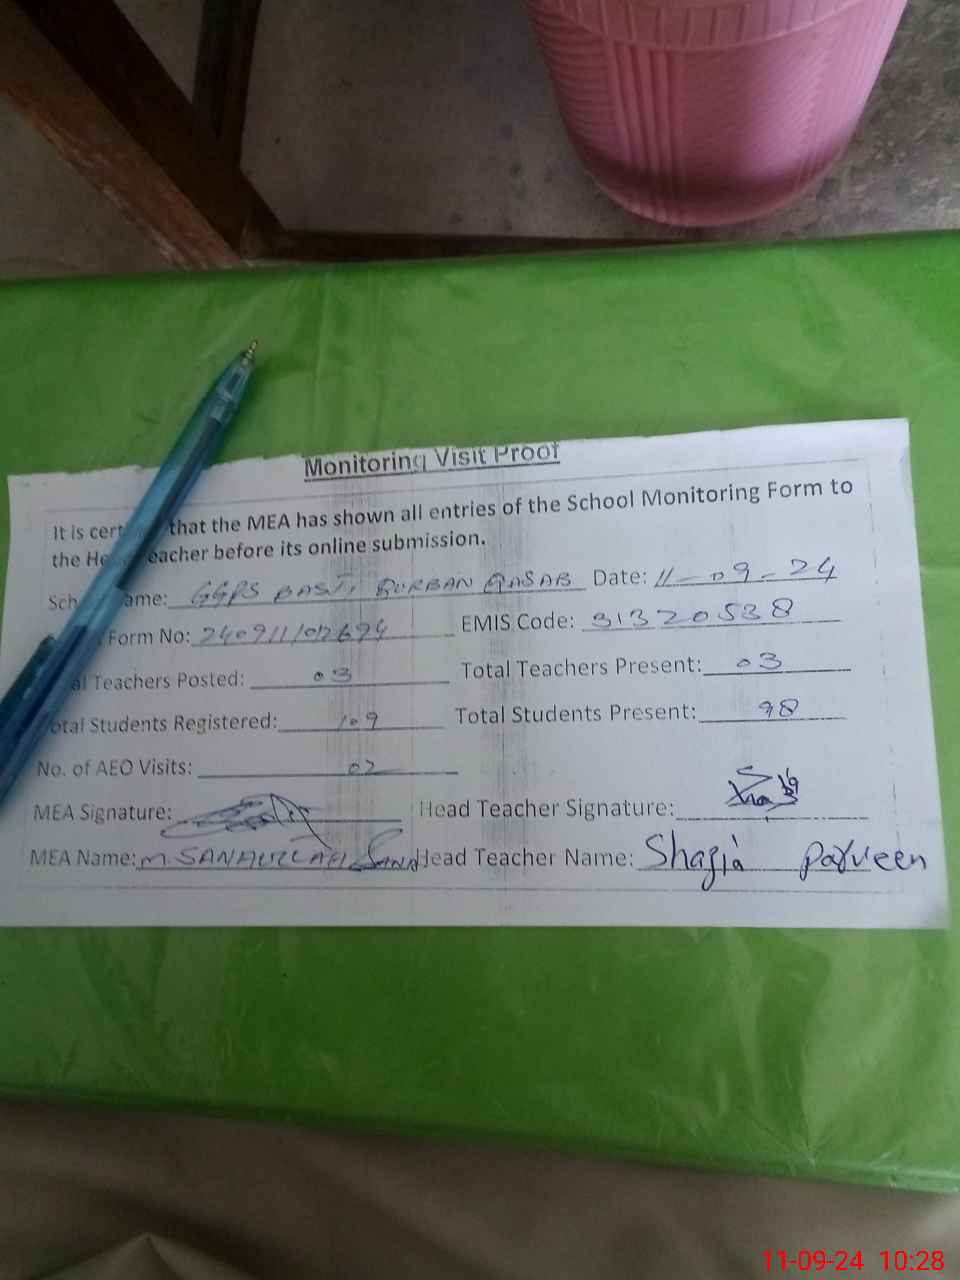 Monitoring Visit Proof
It is cert that the MEA has shown all entries of the School Monitoring Form to
the He eacher before its online submission.
Sch ame: GGPS BASTI QURBAN QASAB Date: 11-09-24
Form No: EMIS Code: 31320538
al Teachers Posted: 03 Total Teachers Present: 03
otal Students Registered: 109 Total Students Present: 98
No. of AEO Visits: 02
MEA Signature: Head Teacher Signature:
MEA Name: M SANAULLAH Head Teacher Name: Shazia Parveen
11-09-24 10:28